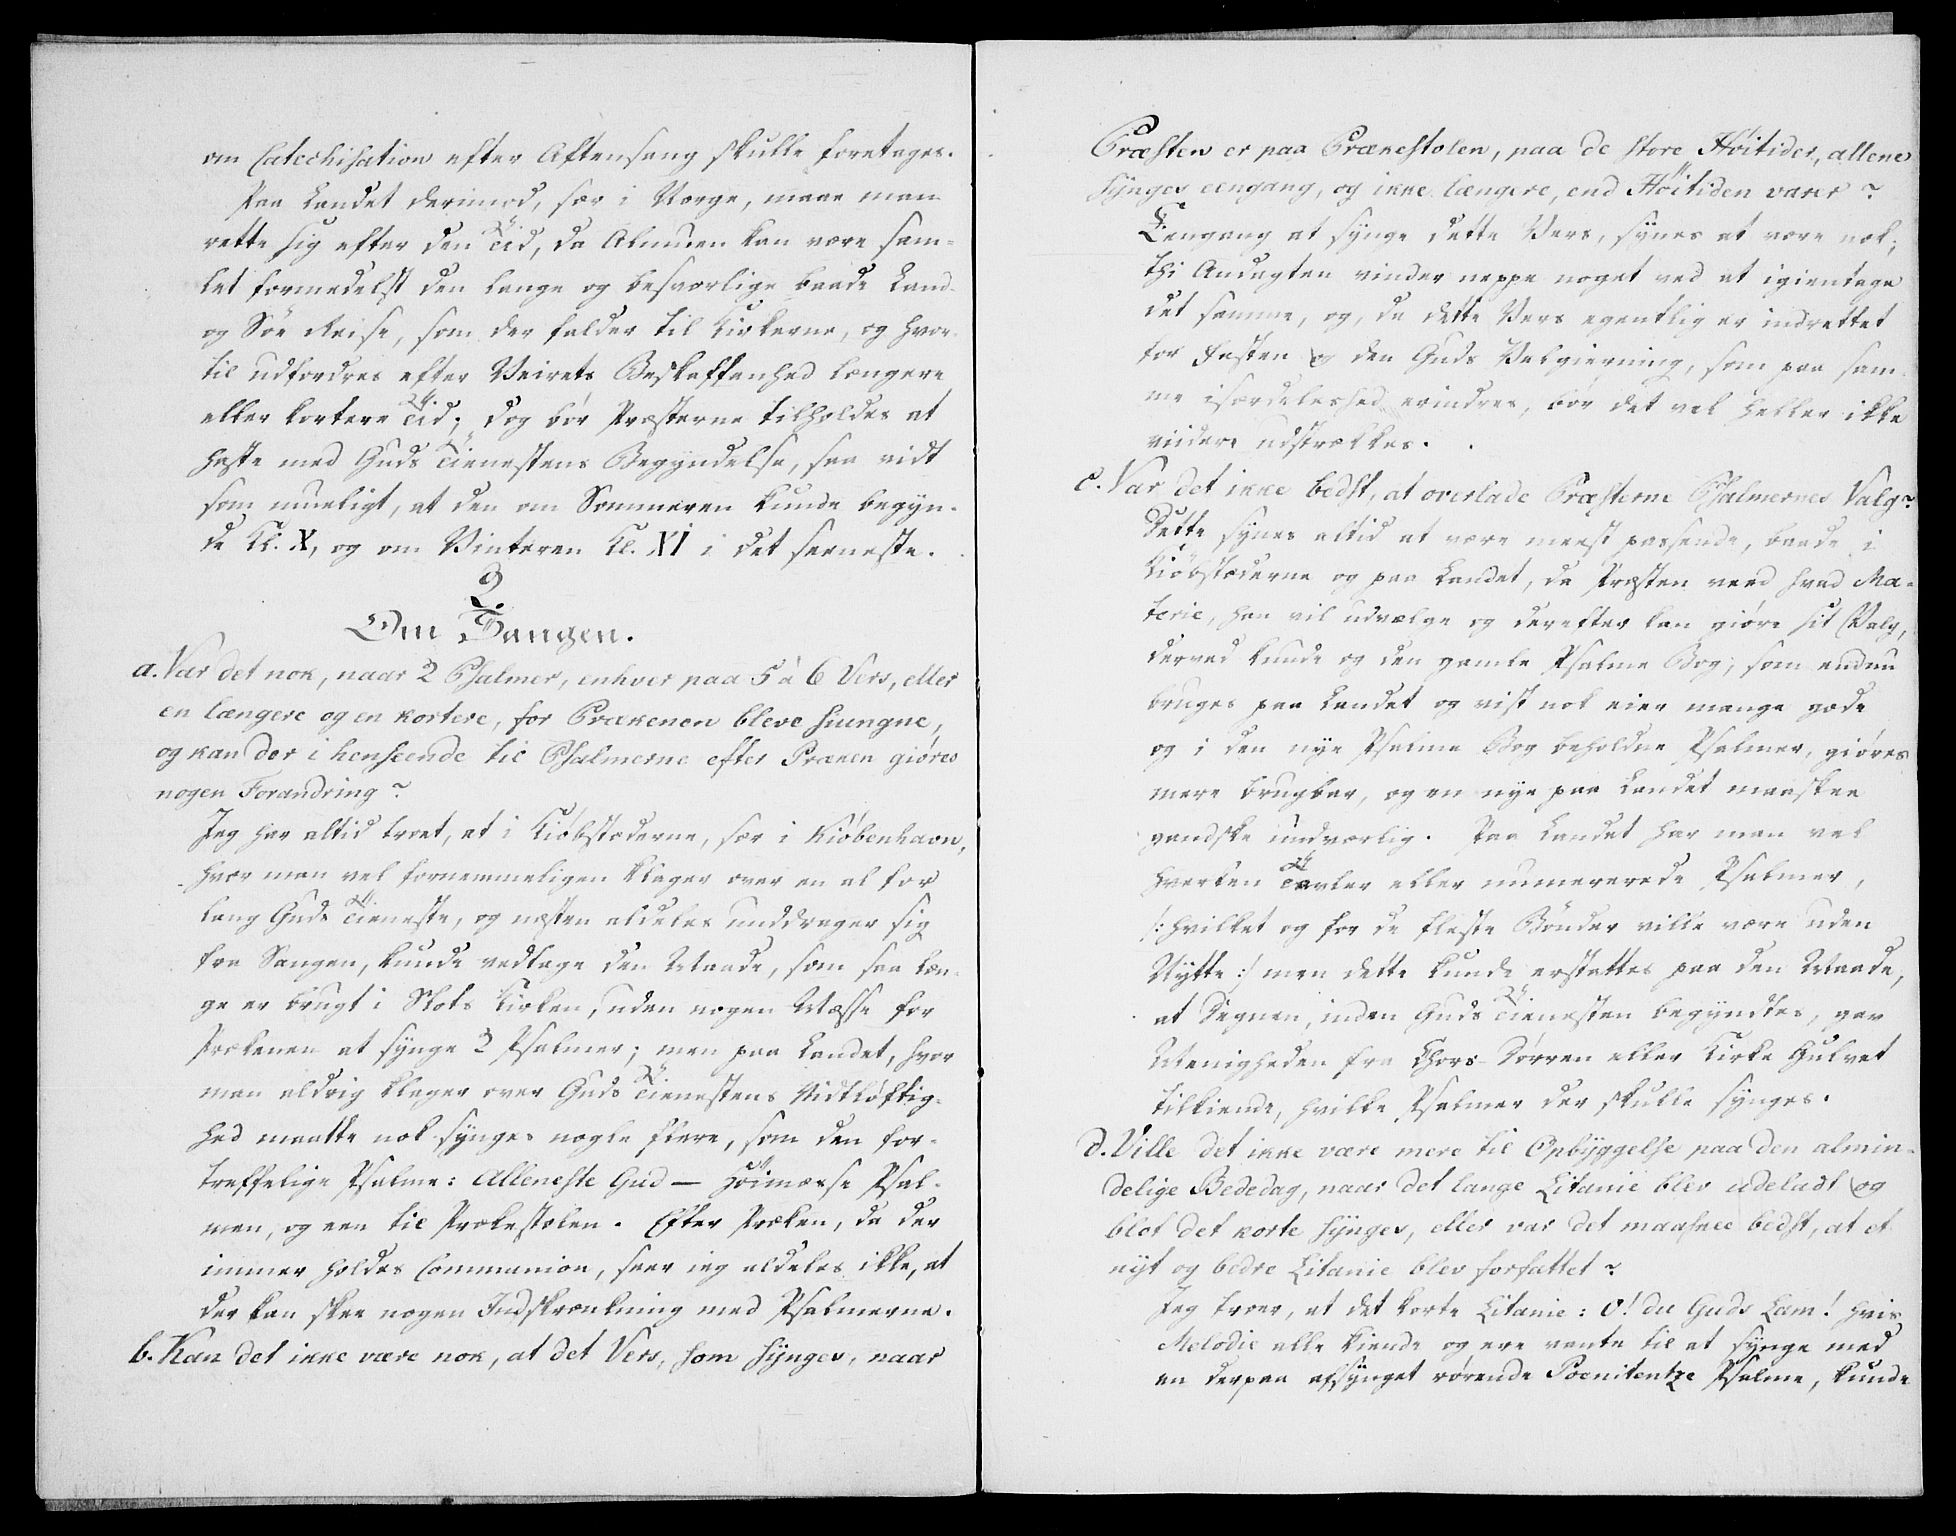 om Catechisation efter Aftensang skulle foretages.
Paa Landet derimod, sær i Norge, maae man
rette sig efter den Tid, da Almuen kan være sam-
let formedelst den lange og besværlige baade Land-
og Söe Reise, som der falder til Kirkerne, og hvor-
til udfordres efter Veirets Beskaffenhed længere
eller kortere Tid; dog bör Præsterne tilholdes at
haste med Guds Tienestens Begyndelse, saa vidt
som mueligt, at den om Sommeren kunde begyn-
de Kl. X, og om Vinteren Kl. XI i det seeneste.
2.
Om Sangen.
a. Var det nok, naar 2 Psalmer, enhver paa 5 à 6 Vers, eller
en længere og en kortere, for Prækenen bleve siungne,
og kan der i henseende til Psalmerne efter Præken giøres
nogen Forandring?
Jeg har altid troet, at i Kiöbstæderne, sær i Kiöbenhavn,
hvor man vel fornemmeligen klager over en al for
lang Guds Tieneste, og næsten aldeles unddrager sig
fra Sangen, kunde vedtage den Maade, som saa læn-
ge er brugt i Slots Kirken, uden nogen Messe for
Prækenen at synge 2 Psalmer; men paa Landet, hvor
man aldrig klager over Guds Tienestens Vidtlöftig-
hed maatte nok synges nogle flere, som den for-
treffelige Psalme: Alleneste Gud — Höimesse Psal-
men, og een til Prækestolen. Efter Præken, da der
immer holdes Communion, seer ieg aldeles ikke, at
der kan skee nogen Indskrænkning med Psalmerne.
b. Kan det ikke være nok, at det Vers, som synges, naar
Præsten er paa Prækestolen, paa de store Höitider, allene
synges eengang, og ikke længere, end Höitiden varer?
Eengang at synge dette Vers, synes at være nok;
thi Andagten vinder neppe noget ved at igientage
det samme, og, da dette Vers egentlig er indrettet
for Festen og den Guds Velgierning, som paa sam-
me isærdeleshed erindres, bör det vel heller ikke
videre udstrækkes.
c. Var det ikke bedst, at overlade Præsterne Psalmernes Valg?
Dette synes altid at være meest passende, baade i
Kiöbstæderne og paa Landet, da Præsten veed hvad Ma-
terie, han vil udvælge og derefter kan giöre sit Valg,
derved kunde og den gamle Psalme Bog, som endnu
bruges paa Landet og vist nok eier mange gode
og i den nye Psalme Bog beholdne Psalmer, giöres
mere brugbar, og en nye paa Landet maaskee
gandske undværlig. Paa Landet har man vel
hverken Tavler eller numererede Psalmer,
/: hvilket og for de fleste Bönder ville være uden
Nytte :/ men dette kunde erstattes paa den Maade,
at Degnen, inden Guds Tienesten begyndtes, gav
Menigheden fra Chors-Dörren eller Kirke Gulvet
tilkiende, hvilke Psalmer der skulle synges.
d. Ville det ikke være mere til Opbyggelse paa den almin-
delige Bededag, naar det lange Litanie blev udeladt og
blot det korte synges, eller var det maaskee bedst, at et
nyt og bedre Litanie blev forfattet?
Jeg troer, at det korte Litanie: O! du Guds Lam! hvis
Melodie alle kiende og ere vante til at synge med
en derpaa afsynget rörende Poenitentze Psalme, kunde